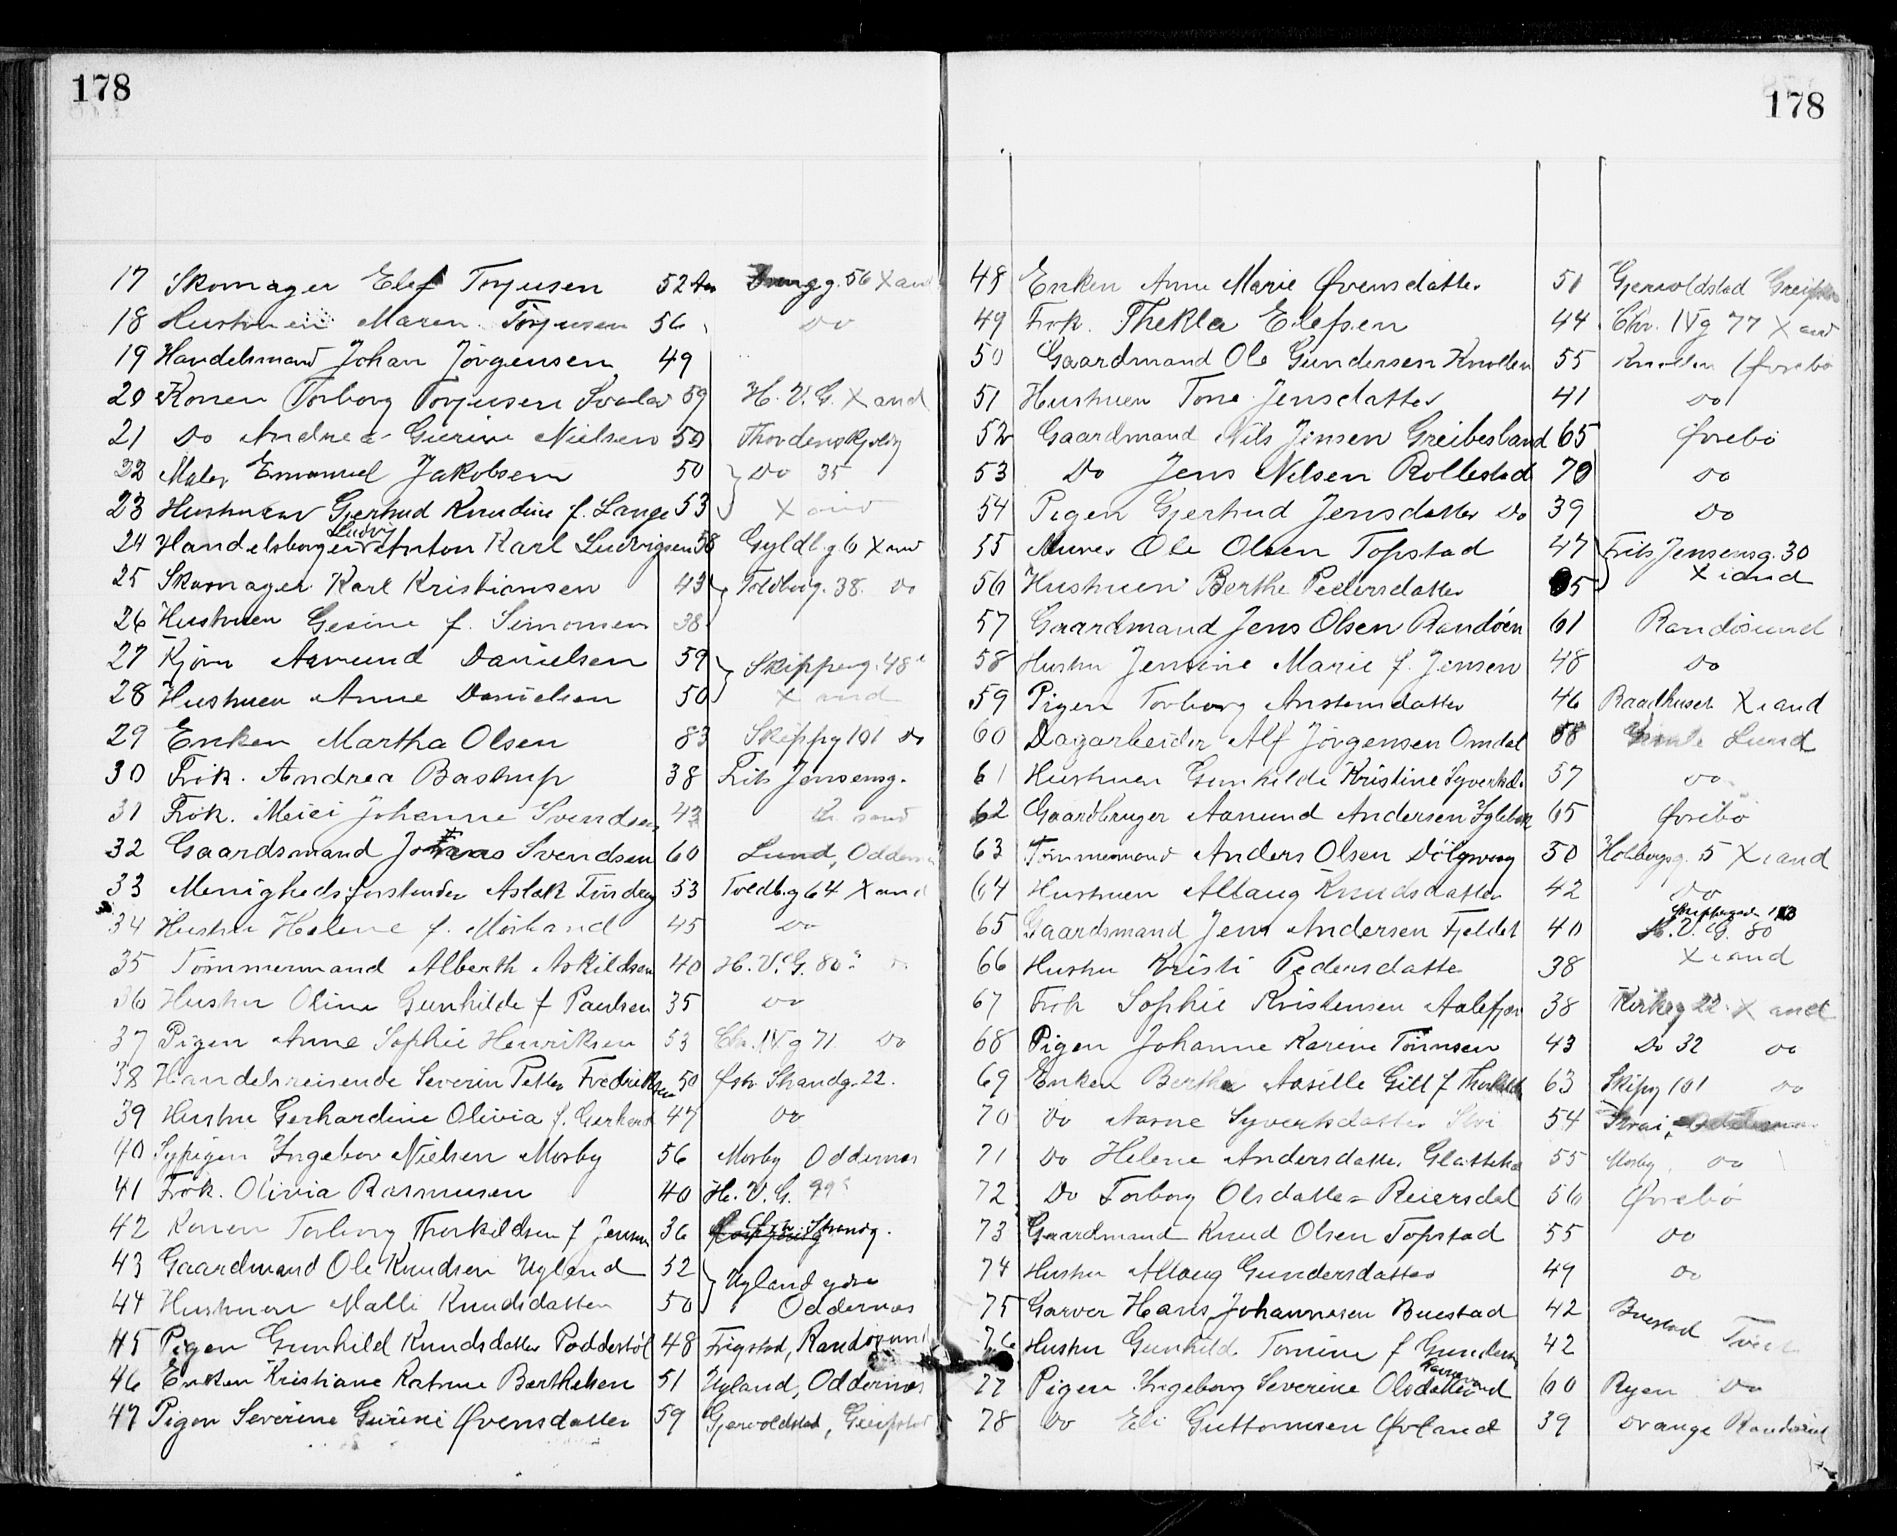 178
17 Skomager Elef Torjusen 52 Aar g. 56 X and
18 Hustruen Maren Torjusen 56 Do
19 Handelsmand Johan Jörgensen 49
20 Konen Torborg Torjusen 59 H. V. G. X and
21 Do Andrea Gurine Nielsen 50
22 Maler Emanuel Jakobsen 50 Do 35
23 Hustruen Gjertrud Knudine f. Lange 53 X and
24 Handelsborger Ludvig Anton Karl Ludvigsen 58 Gyldl. g 6 X and
25 Skomager Karl Kristiansen 43 Toldbog. 38. Do
26 Hustruen Gesine f. Simonsen 38
27 Aamund Danielsen 59 Skipperg. 48
28 Hustruen Anne Danielsen 50 X and
29 Enken Martha Olsen 83 Skippg 101 Do
30 Frök. Andrea Bastrup 38 Frits Jensensg.
31 Frök. Johanne Svendsen 43
32 Gaardsmand Svendsen 60 Lund, Oddernes
33 Menighedsforstander Aslak 53 Toldbg 64 X and
34 Hustru Helene f. 45 Do
35 Tömmermand Alberth Askildsen 40 H. V. G. 80
36 Hustru Oline Gunhilde f Paulsen 35 Do
37 Pigen Anne Sophie Henriksen 53 Chr. IV g 71 Do
38 Handelsreisende Severin Petter Fredriksen 50 Østr. Strandg. 22.
39 Hustru Gerhardine Olivia f. 47 Do
40 Sypigen Ingebor Nielsen Mosby 56 Mosby Oddernes
41 Frök. Olivia Rasmussen 40 H. V. G. 99
42 Konen Torborg Thorkildsen f Jensen 36 Østr. Strandg.
43 Gaardmand Ole Knudsen Ugland 52 Ugland
44 Hustruen Malli Knudsdatter 50 Oddernes
45 Pigen Gunhild Knudsdatter 48 Frigstad, Randøsund
46 Enken Kristiane Katrine Berthelsen 51 Ugland, Oddernes
47 Pigen Severine Øvensdatter 59 Gjervoldstad,
178
48 Enken Anne Marie Øvensdatter 51 Gjervoldstad
49 Frök. Thekla Elefsen 44 Chr. IV g 77 X and
50 Gaardmand Ole Gundersen Knollen 55 Knollen Øvrebø
51 Hustruen Tone Jensdatter 41 Do
52 Gaardmand Nils Jensen Greibesland 65 Øvrebö
53 Do Jens Nilsen Rollestad 70 Do
54 Pigen Gjertrud Jensdatter Do 39 Do
55 Murer Ole Olsen Topstad 47 Frits Jensensg. 30
56 Hustruen Berthe Pedersdatter 5 X iand
57 Gaardmand Jens Olsen Randöen 61 Randösund
58 Hustru Jensine Marie f. Jensen 48 Do
59 Pigen Torborg Anstensdatter 46 Raadhuset X iand
60 Dagarbeider Alf Jörgensen Omdal 58 Lund
61 Hustruen Gunhilde Kristine Syvertsd. 57 Do
62 Gaardbruger Aanund Andersen 65 Øvrebö
63 Tömmermand Anders Olsen 50 Holbergsg. 5 X iand
64 Hustruen Allaug Knudsdatter 42 Do
65 Gaardsmand Jens Andersen Fjeldet 40 H. V. G. 80
66 Hustru Kristi Pedersdatter 38 X iand
67 Frök Sophie Kristensen 38 Kirkeg 22 X and
68 Pigen Johanne Karine Tönnsen 43 Do 32 Do
69 Enken Berthe Aasille Gill f 63 Skipg 101 Do
70 Do Aasne Syvertsdatter 54
71 Do Helene Andersdatter 55 Mosby Do
72 Do Torborg Olsdatter Reiersdal 56 Øvrebö
73 Gaardmand Knud Olsen Topstad 55 Do
74 Hustru Allaug Gundersdatter 49 Do
75 Garver Hans Johannesen Buestad 42 Buestad Tveit
76 Hustru Gunhild Tomine f Gundersen 42
77 Pigen Ingeborg Severine Olsdatter 60 Ryen Do
78 Do Eli Guttormsen Øvland 39 Drange Randøsund